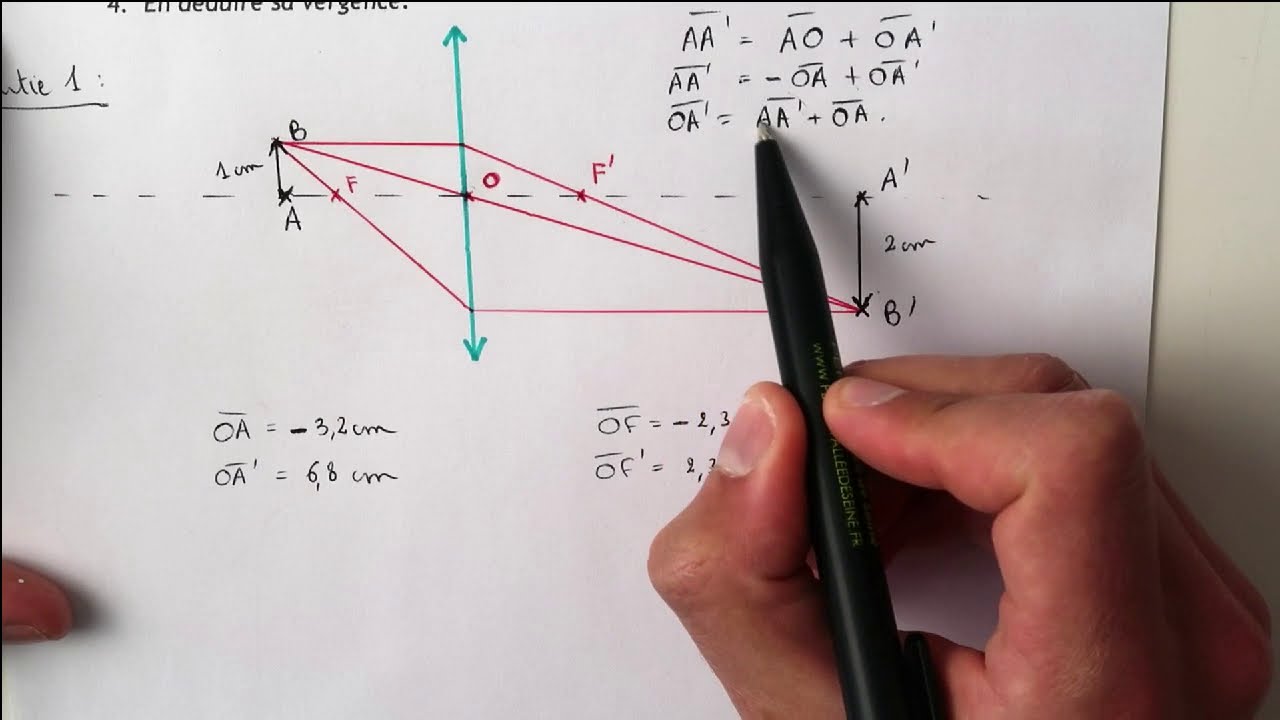 4. En déduire sa vergence.
1 :
A̅A̅' = A̅O̅ + O̅A̅'
A̅A̅' = - O̅A̅ + O̅A̅'
O̅A̅' = A̅A̅' + O̅A̅.
B
1 cm
F
O
F'
A'
A
2 cm
B'
O̅A̅ = - 3,2 cm
O̅A̅' = 6,8 cm
O̅F̅ = - 2,3
O̅F̅' = 2,
ALLEEDESEINE.FR